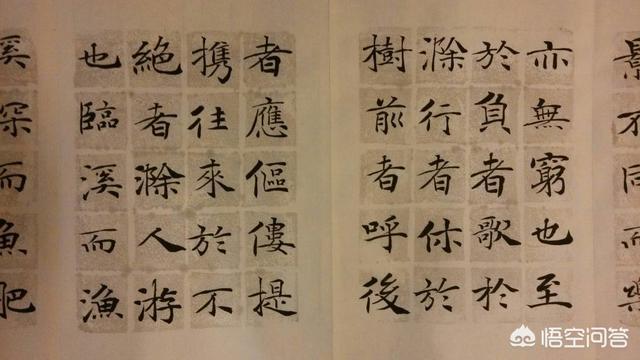 景不同而樂
亦無窮也至
於負者歌於
滁行者休於
樹前者呼後
者應傴僂提
携往來於不
絶者滁人游
也臨溪而漁
溪深而魚肥
悟空问答